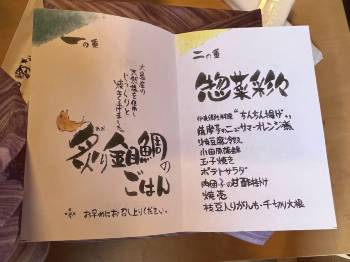 一の重
大島産の
天然塩を使用し
じっくりと
焼き上げました。
炙り金目鯛の
ごはん
お早めにお召し上りください。
二の重
惣菜彩々
伊東郷土料理 "ちんちん揚げ"
薩摩芋のニューサマーオレンジ煮
小田原蒲鉾
玉子焼き
ポテトサラダ
肉団子の甘酢掛け
焼売
枝豆入りがんも・千切り大根